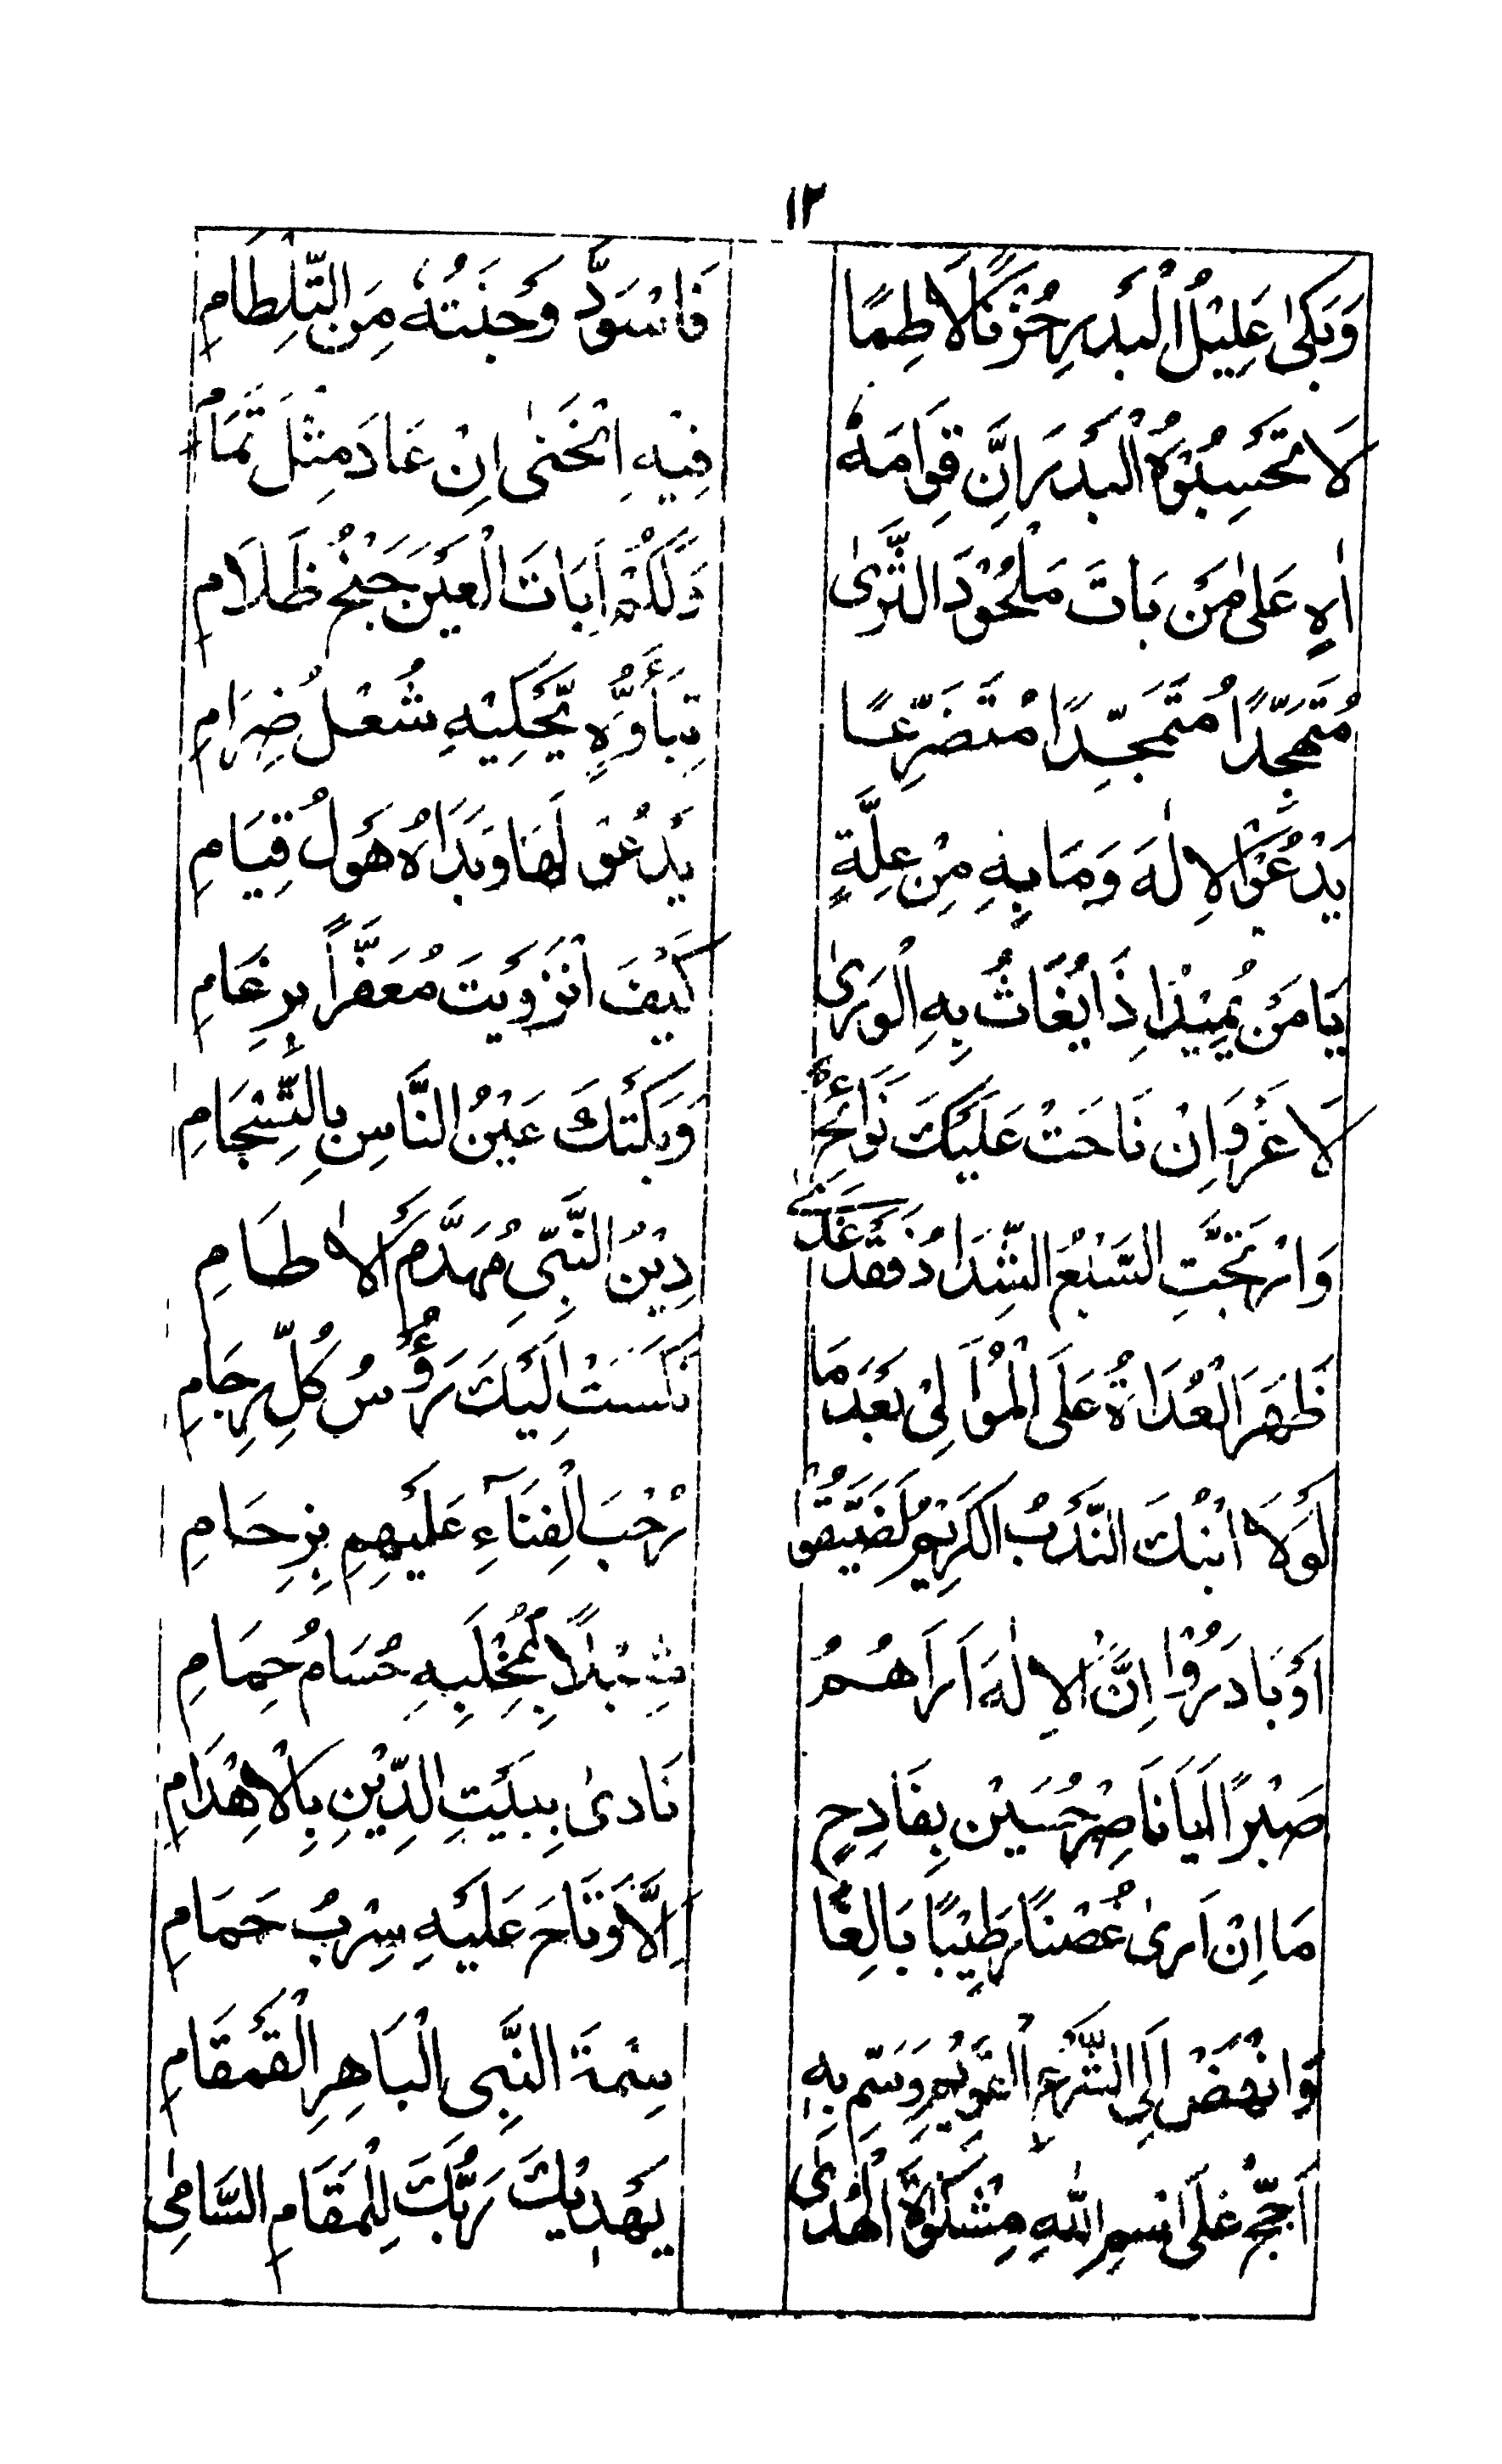 ١٢
وَبَكىٰ عَلِيْلُ الْبَدرِ حُزْنًا لَاطِمًا
فَاسْوَدَّ وَجْنَتُهُ مِنَ التِّلِطَامِ
لَا تَحْسِبُوْهُ الْبَدْرَ اِنَّ قِوَامَهُ
فِيْهِ انْحَنىٰ اِنْ عَادَ مِثْلَ تَمَامِ
اٰهٍ عَلىٰ مَنْ بَاتَ مَلْحُوْدَ الثَّرىٰ
وَلَكَمْ اَبَاتَ الْعَيْنَ جَنْحُ ظَلَامِ
مُتَهَجِّدًا مُتَمَجِّدًا مُتَضَرِّعًا
بِتَأَوُّهٍ يَّحْكِيْهِ شُعْلُ ضِرَامِ
يَدْعُوْ الْاِلٰهَ وَمَا بِهٖ مِنْ عِلَّةٍ
يَدْعُوْ لَهَا وَبَدَاهُ هَولُ قِيَامِ
يَا مَنْ يُمِيْدُ اِذَا يُغَاثُ بِهِ الْوَرىٰ
كَيْفَ انْزَوَيتَ مُعَفَّراً بِرِغَامِ
لَا غَرْوَ اِنْ نَاحَتْ عَلَيْكَ نَوَائِحُ
وَبَكَتْكَ عَيْنُ النَّاسِ بِالتِّسْجَامِ
وَارْتَجَّتِ السَّبْعُ الشِّدَادُ فَقَدْ غَدٰى
دِيْنُ النَّبِّى مُهَدَّمَ الْاٰطَامِ
ظَهَرَ الْعُدَاةُ عَلَى الْمُوَالِىْ بَعْدَ مَا
نَكَسَتْ اِلَيْكَ رَؤُسُ كُلِّ رِجَامِ
لَوْلَا ابْنُكَ النَّدْبُ الكَرِيْمُ لَضَيَّقُوْا
رُحْبَ الْفِنَآءِ عَلَيْهِمِ بِزِحَامِ
اَوْ بَادَرُوْا اِنَّ الْاِلٰهَ اَرَاهُمُ
شِبْلًا لِمُخْلَبِهِ حُسَامُ حِمَامِ
صَبْرًا اَيَا نَاصِرْ حُسَيْن بِفَادِحٍ
نَادىٰ بِبَيْتِ الدِّيْنِ بِالْاِهْدَامِ
مَا اِنْ اَرىٰ غُصْنًا رَطِيْبًا يَالِعًا
اِلَّا وَنَاحَ عَلَيْهِ سِرْبُ حَمَامِ
وَانْهَضْ اِلَى الشَّرْعِ الْقَوِيْمِ وَسِّمْ بِهٖ
سِمَةَ النَّبِى الْبَاهِرِ الْقَمْقَامِ
اَجِّجْ عَلَى اسْمِ اللهِ مِشْكَوٰةَ الْهُدىٰ
يَهْدِيْكَ رَبُّكَ لِلْمَقَامِ السَّامِىْ